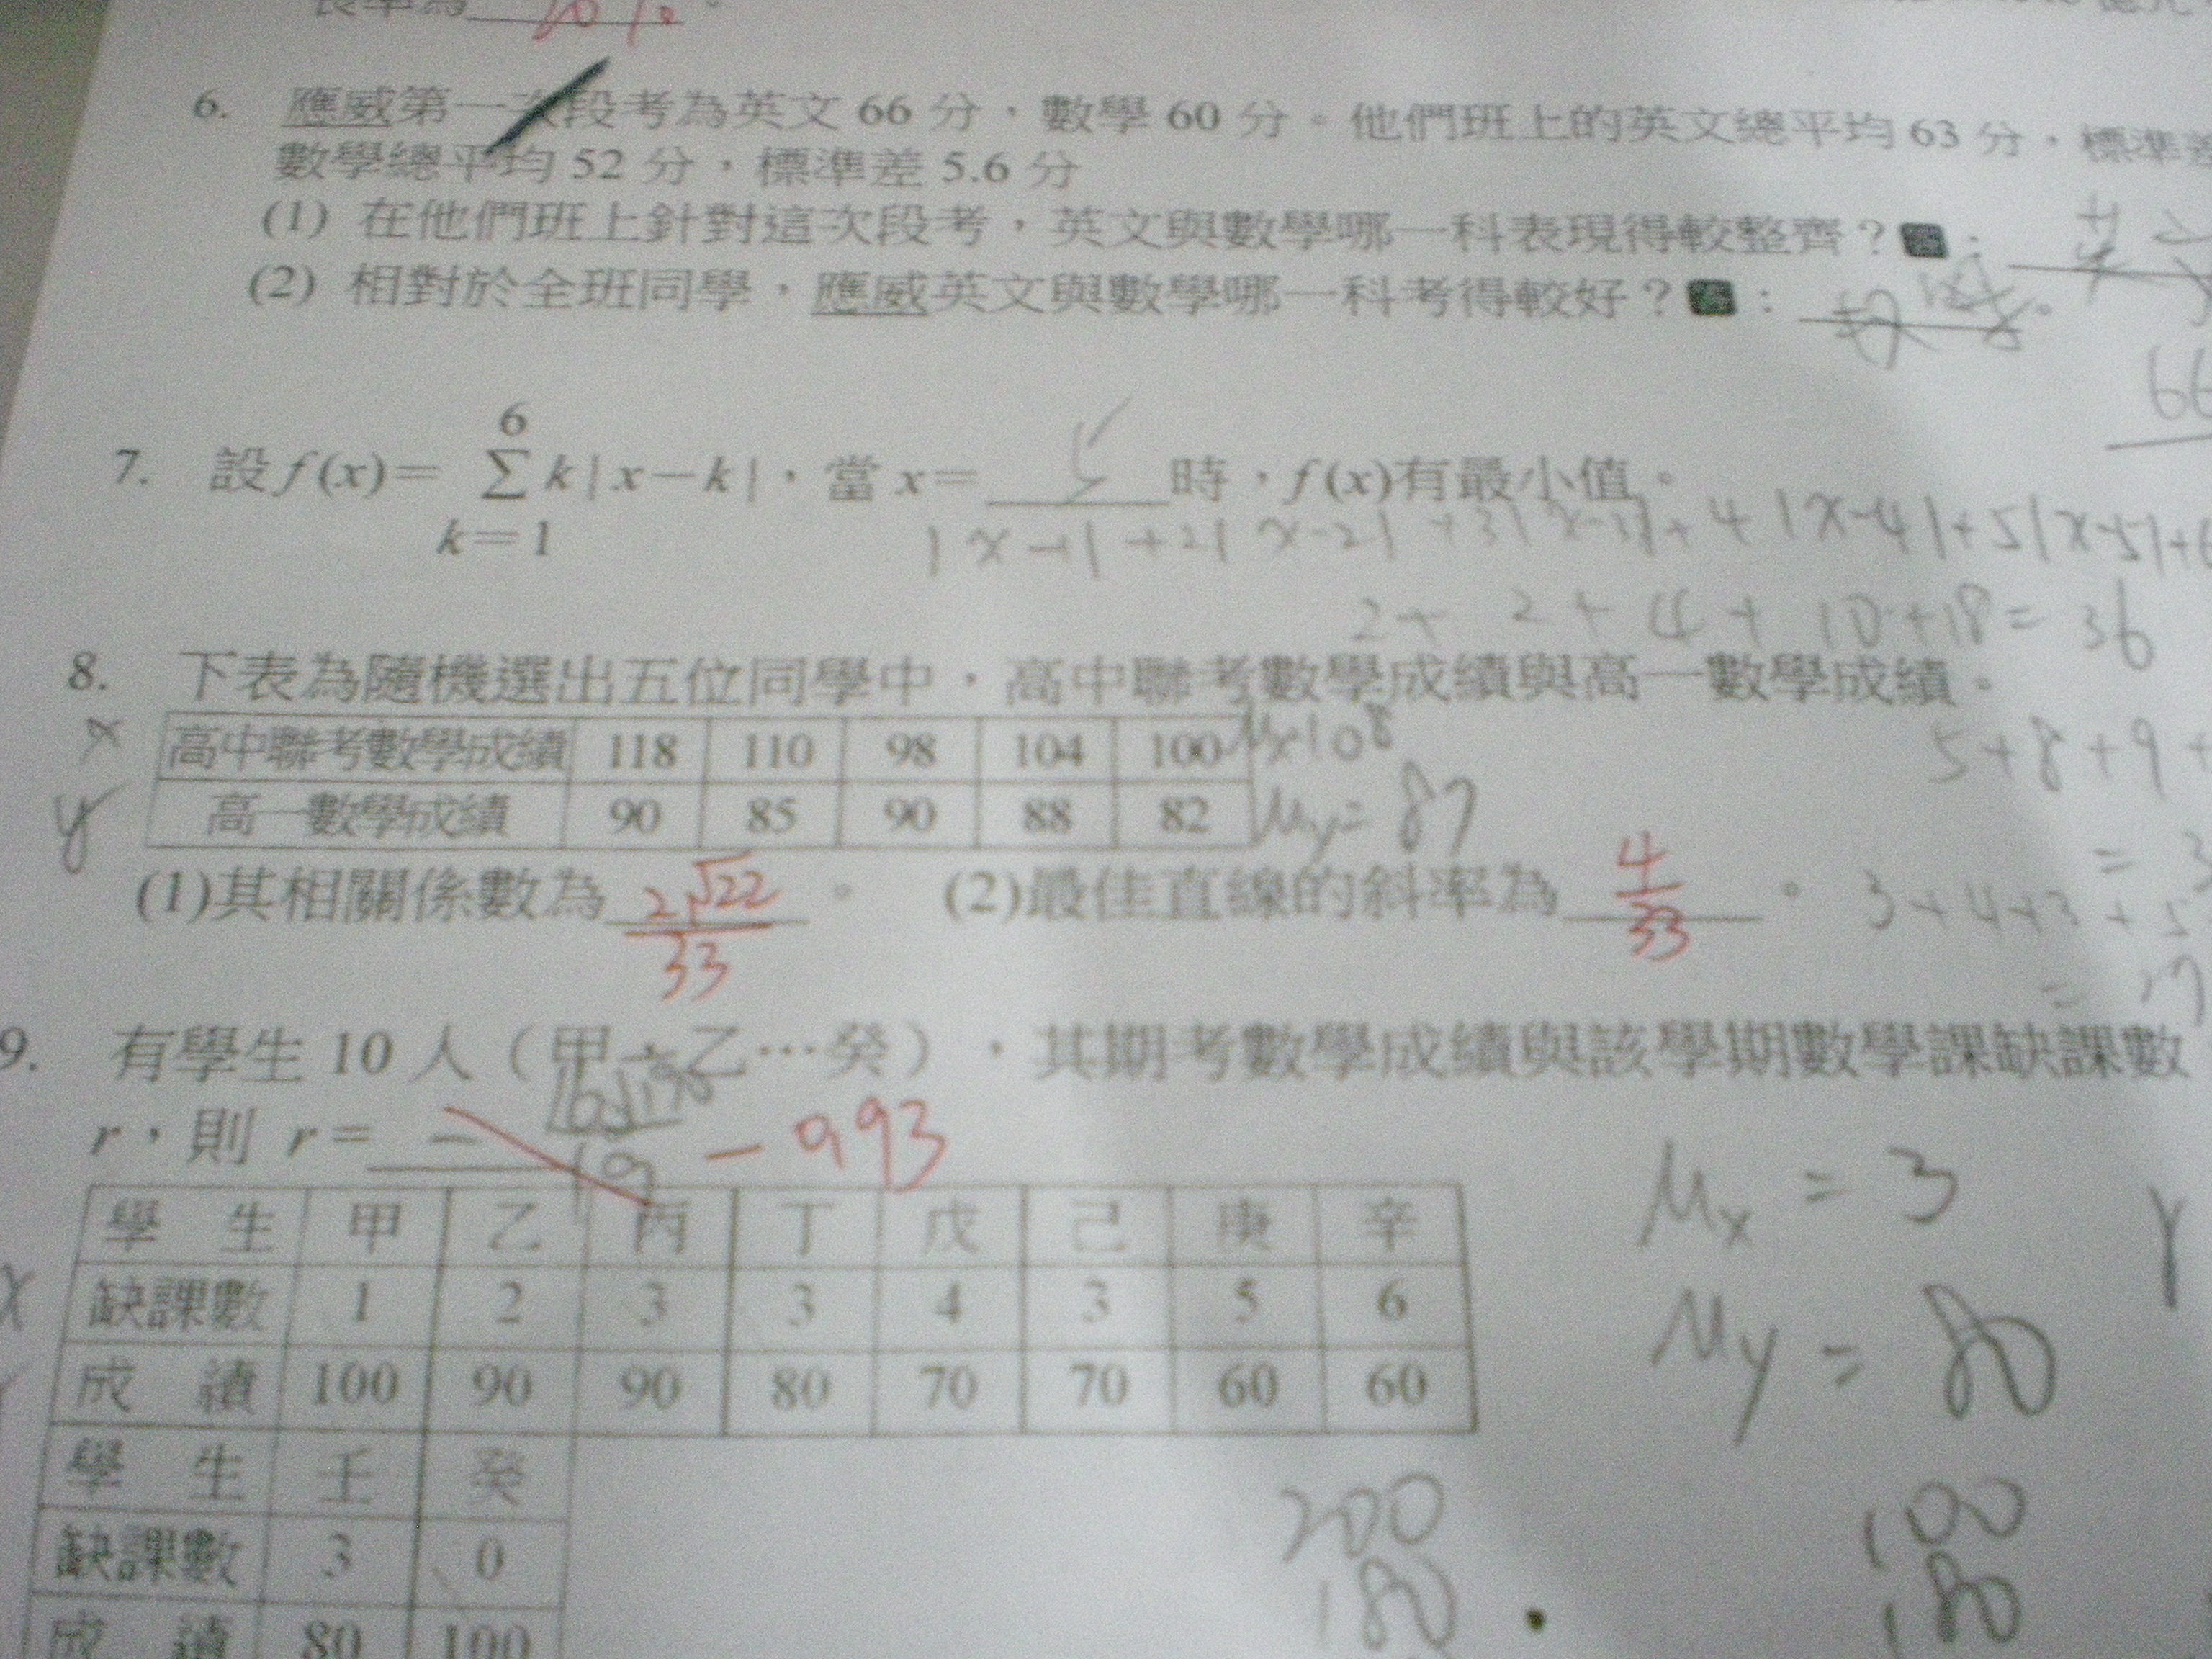 6. 應威第一次段考為英文 66 分，數學 60 分。他們班上的英文總平均 63 分，標準差
數學總平均 52 分，標準差 5.6 分
(1) 在他們班上針對這次段考，英文與數學哪一科表現得較整齊？答：
(2) 相對於全班同學，應威英文與數學哪一科考得較好？答：
66
7. 設 f(x)= 6 Σ k=1 k|x−k|，當 x= 5 時，f(x)有最小值。
1|x-1|+2|x-2|+3|x-3|+4|x-4|+5|x-5|+6
2+ 2+ 4+ 10+18= 36
8. 下表為隨機選出五位同學中，高中聯考數學成績與高一數學成績。
5+8+9+
x 高中聯考數學成績 118 110 98 104 100 Mx=108
y 高一數學成績 90 85 90 88 82 My= 87
= 3
(1)其相關係數為 2√22/33 。 (2)最佳直線的斜率為 4/33 。
3+4+3+5
= 17
9. 有學生 10 人（甲、乙…癸），其期考數學成績與該學期數學課缺課數
r，則 r= − -0.93
學 生 甲 乙 丙 丁 戊 己 庚 辛
x 缺課數 1 2 3 3 4 3 5 6
成 績 100 90 90 80 70 70 60 60
學 生 壬 癸
缺課數 3 0
成 績 80 100
Mx = 3
My = 80
200
180
100
180